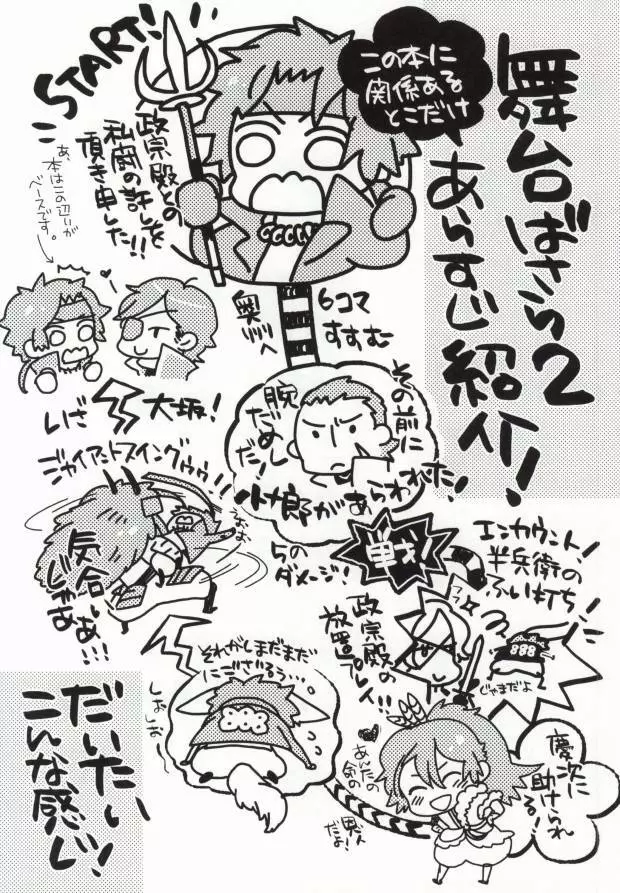 舞台ばさら2
あらすじ紹介!
この本に
関係ある
とこだけ
START!
政宗殿との
私闘の許しを
頂き申した!!
あ、
本はこの辺りが
ベースです。
6コマ
すすむ
奥州へ
その前に
腕
だめしだ!
小十郎があらわれた!
戦!
5のダメージ!
エンカウント!
半兵衛の
ふい打ち!
政宗殿の
放置プレイ!!
じゃまだよ
慶次に
助けられる!
あんたの
気の
恩人
だよ!
それがしまだまだ
にござるぅ…
しおしお
気合いじゃあ
あ!!!
ジャイアントスイングゥゥ!!
いざ
大坂!
だいたい
こんな感じ!